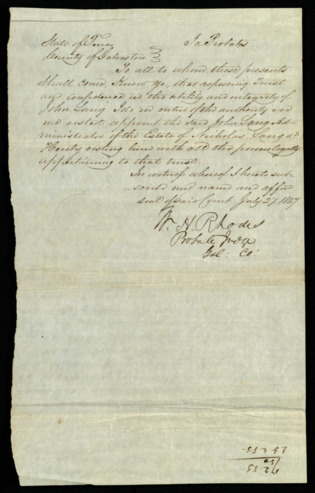 State of Texas In Probate
County of Galveston
To all to whom these presents
Shall come, Know ye, that reposing Trust
and confidence in the ability and integrity of
John Lang, I do in virtue of the authority in
me vested, appoint the said John Lang Ad-
ministrator of the Estate of Nicholas Lang
Hereby vesting him with all the powers legally
appertaining to that trust.
In witness whereof I hereto sub
scribe my name and affix
seal of said Court July 27. 1847
Wm H. Rhodes
Probate Judge
Gal: Co: